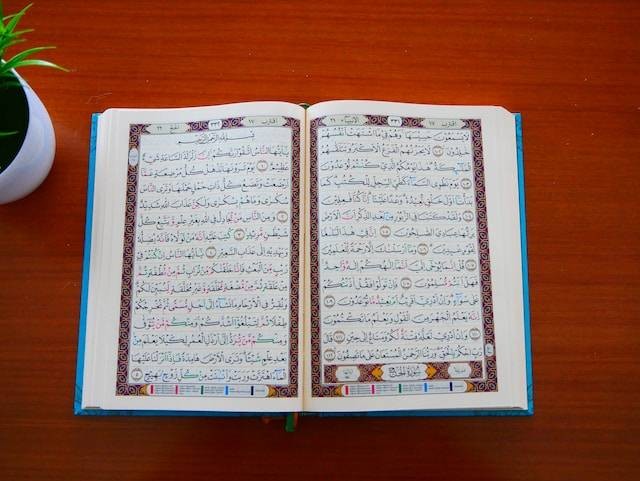 اقترب ١٧ ٣٣١ الأنبياء ٢١
لَا يَسْمَعُونَ حَسِيسَهَا وَهُمْ فِي مَا اشْتَهَتْ أَنفُسُهُمْ
خَٰلِدُونَ ١٠٢ لَا يَحْزُنُهُمُ الْفَزَعُ الْأَكْبَرُ وَتَتَلَقَّىٰهُمُ
الْمَلَٰٓئِكَةُ هَٰذَا يَوْمُكُمُ الَّذِي كُنتُمْ تُوعَدُونَ
١٠٣ يَوْمَ نَطْوِي السَّمَآءَ كَطَيِّ السِّجِلِّ لِلْكُتُبِ كَمَا
بَدَأْنَآ أَوَّلَ خَلْقٍ نُّعِيدُهُ وَعْدًا عَلَيْنَآ إِنَّا كُنَّا فَٰعِلِينَ
١٠٤ وَلَقَدْ كَتَبْنَا فِي الزَّبُورِ مِن بَعْدِ الذِّكْرِ أَنَّ الْأَرْضَ
يَرِثُهَا عِبَادِيَ الصَّٰلِحُونَ ١٠٥ إِنَّ فِي هَٰذَا لَبَلَٰغًا
لِّقَوْمٍ عَٰبِدِينَ ١٠٦ وَمَآ أَرْسَلْنَٰكَ إِلَّا رَحْمَةً لِّلْعَٰلَمِينَ
١٠٧ قُلْ إِنَّمَا يُوحَىٰٓ إِلَيَّ أَنَّمَآ إِلَٰهُكُمْ إِلَٰهٌ وَٰحِدٌ
فَهَلْ أَنتُم مُّسْلِمُونَ ١٠٨ فَإِن تَوَلَّوْا فَقُلْ ءَاذَنتُكُمْ
عَلَىٰ سَوَآءٍ وَإِنْ أَدْرِيٓ أَقَرِيبٌ أَم بَعِيدٌ مَّا تُوعَدُونَ ١٠٩
إِنَّهُ يَعْلَمُ الْجَهْرَ مِنَ الْقَوْلِ وَيَعْلَمُ مَا تَكْتُمُونَ
١١٠ وَإِنْ أَدْرِي لَعَلَّهُ فِتْنَةٌ لَّكُمْ وَمَتَٰعٌ إِلَىٰ حِينٍ ١١١ قَٰلَ
رَبِّ احْكُم بِالْحَقِّ وَرَبُّنَا الرَّحْمَٰنُ الْمُسْتَعَانُ عَلَىٰ مَا تَصِفُونَ ١١٢
سُورَةُ الْحَجِّ
اقترب ١٧ ٣٣٢ الحج ٢٢
بِسْمِ اللَّهِ الرَّحْمَٰنِ الرَّحِيمِ
يَٰٓأَيُّهَا النَّاسُ اتَّقُوا رَبَّكُمْ إِنَّ زَلْزَلَةَ السَّاعَةِ شَيْءٌ
عَظِيمٌ ١ يَوْمَ تَرَوْنَهَا تَذْهَلُ كُلُّ مُرْضِعَةٍ عَمَّآ
أَرْضَعَتْ وَتَضَعُ كُلُّ ذَاتِ حَمْلٍ حَمْلَهَا وَتَرَى النَّاسَ
سُكَٰرَىٰ وَمَا هُم بِسُكَٰرَىٰ وَلَٰكِنَّ عَذَابَ اللَّهِ شَدِيدٌ
٢ وَمِنَ النَّاسِ مَن يُجَٰدِلُ فِي اللَّهِ بِغَيْرِ عِلْمٍ وَيَتَّبِعُ كُلَّ
شَيْطَٰنٍ مَّرِيدٍ ٣ كُتِبَ عَلَيْهِ أَنَّهُ مَن تَوَلَّاهُ فَأَنَّهُ يُضِلُّهُ
وَيَهْدِيهِ إِلَىٰ عَذَابِ السَّعِيرِ ٤ يَٰٓأَيُّهَا النَّاسُ إِن كُنتُمْ فِي
رَيْبٍ مِّنَ الْبَعْثِ فَإِنَّا خَلَقْنَٰكُم مِّن تُرَابٍ ثُمَّ مِن نُّطْفَةٍ ثُمَّ
مِنْ عَلَقَةٍ ثُمَّ مِن مُّضْغَةٍ مُّخَلَّقَةٍ وَغَيْرِ مُخَلَّقَةٍ لِّنُبَيِّنَ لَكُمْ
وَنُقِرُّ فِي الْأَرْحَامِ مَا نَشَآءُ إِلَىٰٓ أَجَلٍ مُّسَمًّى ثُمَّ نُخْرِجُكُمْ
طِفْلًا ثُمَّ لِتَبْلُغُوٓا أَشُدَّكُمْ وَمِنكُم مَّن يُتَوَفَّىٰ
وَمِنكُم مَّن يُرَدُّ إِلَىٰٓ أَرْذَلِ الْعُمُرِ لِكَيْلَا يَعْلَمَ مِن
بَعْدِ عِلْمٍ شَيْـًٔا وَتَرَى الْأَرْضَ هَامِدَةً فَإِذَآ أَنزَلْنَا عَلَيْهَا
الْمَآءَ اهْتَزَّتْ وَرَبَتْ وَأَنبَتَتْ مِن كُلِّ زَوْجٍ بَهِيجٍ ٥